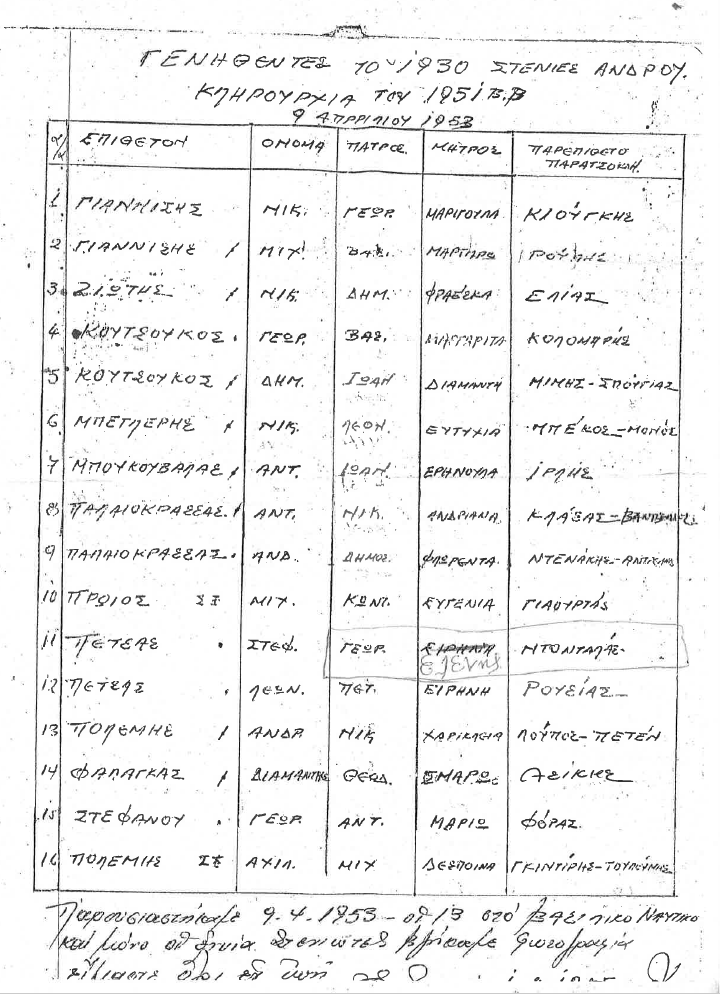 ΓΕΝΗΘΕΝΤΕΣ ΤΟ 1930 ΣΤΕΝΙΕΣ ΑΝΔΡΟΥ.
ΚΛΗΡΟΥΡΧΙΑ ΤΟΥ 1951 Β.Β
9 ΑΠΡΡΙΛΙΟΥ 1953
α/α ΕΠΙΘΕΤΟΝ ΟΝΟΜΑ ΠΑΤΡΟΣ ΜΗΤΡΟΣ ΠΑΡΕΠΙΘΕΤΟ
ΠΑΡΑΤΣΟΚΛΗ
1 ΓΙΑΝΝΙΣΗΣ ΝΙΚ. ΓΕΩΡ. ΜΑΡΙΓΟΥΛΑ ΚΙΟΥΓΚΗΣ
2 ΓΙΑΝΝΙΣΗΣ / ΜΙΧ. ΒΑΣ. ΡΟΥΛΗΣ
3 ΖΙΩΤΗΣ / ΝΙΚ. ΔΗΜ. ΦΡΑΕΣΚΑ ΕΛΙΑΣ
4 ΚΟΥΤΣΟΥΚΟΣ . ΓΕΩΡ. ΒΑΣ. ΜΑΡΓΑΡΙΤΑ ΚΟΛΟΜΑΡΗΣ
5 ΚΟΥΤΣΟΥΚΟΣ / ΔΗΜ. ΙΩΑΝ ΔΙΑΜΑΝΤΗ ΜΙΜΗΣ-ΣΠΟΥΓΙΑΣ
6 ΜΠΕΤΛΕΡΗΣ / ΝΙΚ. ΛΕΟΝ. ΕΥΤΥΧΙΑ ΜΠΕΚΟΣ-ΜΟΝΟΣ
7 ΜΠΟΥΚΟΥΒΑΛΑΣ / ΑΝΤ. ΙΩΑΝ. ΕΡΗΝΟΥΛΑ ΙΡΛΗΣ
8 ΠΑΛΑΙΟΚΡΑΣΣΑΣ / ΑΝΤ. ΝΙΚ. ΑΝΔΡΙΑΝΑ ΚΛΑΣΑΣ-
9 ΠΑΛΑΙΟΚΡΑΣΣΑΣ . ΑΝΔ. ΔΗΜΟΣ. ΦΛΩΡΕΝΤΑ ΝΤΕΝΑΚΗΣ-
10 ΠΡΩΙΟΣ ΣΞ ΜΙΧ. ΚΩΝΤ. ΕΥΓΕΝΙΑ ΓΙΑΟΥΡΤΑΣ
11 ΠΕΤΣΑΣ . ΣΤΕΦ. ΓΕΩΡ. ΕΙΡΗΝΗ ΝΤΟΝΤΑΛΑΣ-
Ελένης
12 ΠΕΤΣΑΣ . ΛΕΩΝ. ΠΕΤ. ΕΙΡΗΝΗ ΡΟΥΣΙΑΣ-
13 ΠΟΛΕΜΗΣ / ΑΝΔΡ ΝΙΚ ΧΑΡΙΚΛΕΙΑ ΛΟΥΠΟΣ-ΠΕΤΕΝ
14 ΦΑΛΑΓΚΑΣ / ΔΙΑΜΑΝΤΗΣ ΘΕΟΔ. ΣΜΑΡΩ ΛΕΙΚΗΣ
15 ΣΤΕΦΑΝΟΥ . ΓΕΩΡ. ΑΝΤ. ΜΑΡΙΩ ΦΟΡΑΣ.
16 ΠΟΛΕΜΗΣ ΣΞ ΑΧΙΛ. ΜΙΧ ΔΕΣΠΟΙΝΑ ΓΚΙΝΤΙΡΗΣ-
Παρουσιαστήκαμε 9.4.1953 - οι 13 στό ΒΑΣΙΛΙΚΟ ΝΑΥΤΙΚΟ
και μόνο οι Στενιώτες βγήκαμε φωτογραφία
είμαστε όλοι εν ζωή